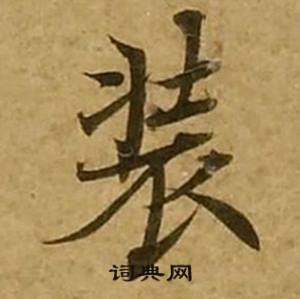 装
词典网